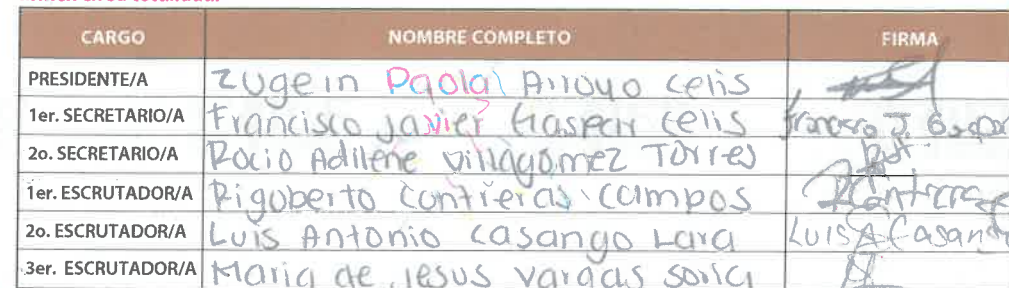 CARGO NOMBRE COMPLETO FIRMA
PRESIDENTE/A Zugein Paola Arroyo Celis
1er. SECRETARIO/A Francisco Javier Gaspar Celis Francisco J. Gaspar
2o. SECRETARIO/A Rocio Adilene Villagomez Torres
1er. ESCRUTADOR/A Rigoberto Contreras Campos RContreras
2o. ESCRUTADOR/A Luis Antonio Casango Lara Luis A Casango
3er. ESCRUTADOR/A Maria de Jesus Vargas Soria